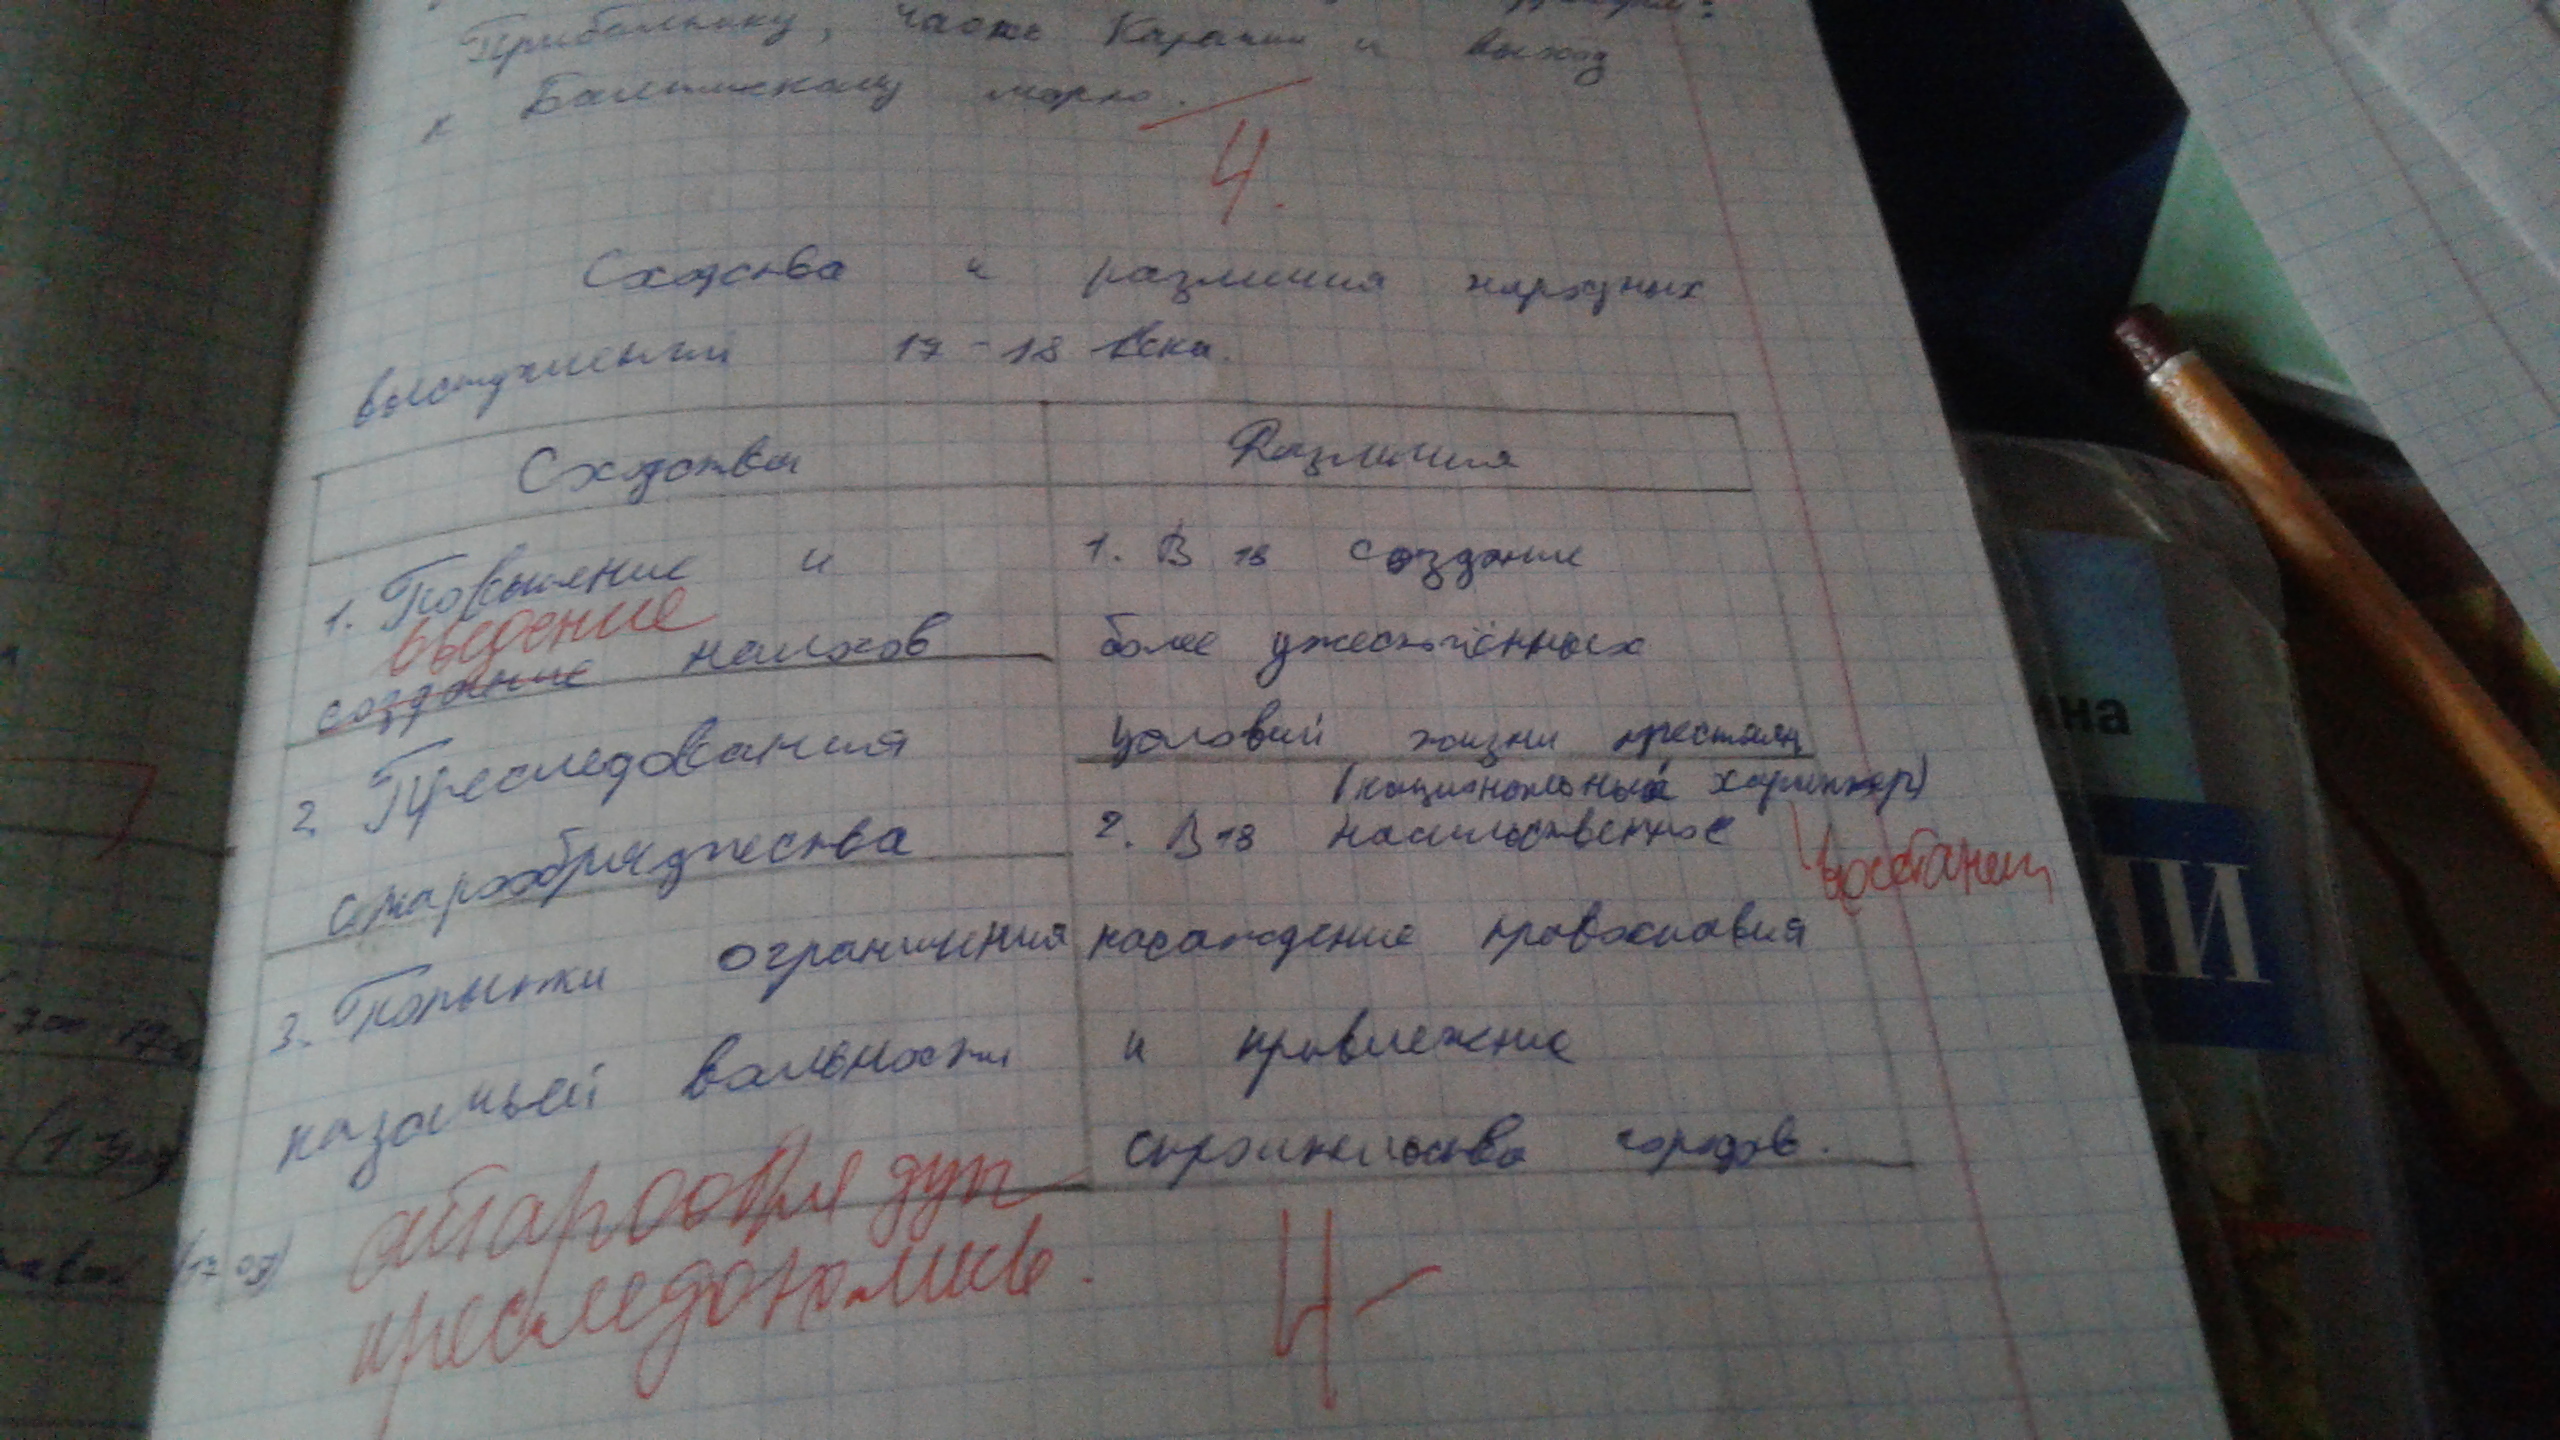 Прибалтику, часть Карелии и выход
к Балтийскому морю.
4.
Сходства и различия народных
выступлений 17-18 века.
Сходства
Различия
1. Повышение и
введение
создание налогов
2. Преследования
старообрядчества
3. Попытки ограничения
казачьей вольности
старообряд
преследовались.
1. В 18 создание
более ужесточённых
условий жизни крестьян
(национальный характер)
восстаний
2. В 18 насильственное
насаждение православия
и привлежение
строительства городов.
4-
(1707)
ина
ИИ